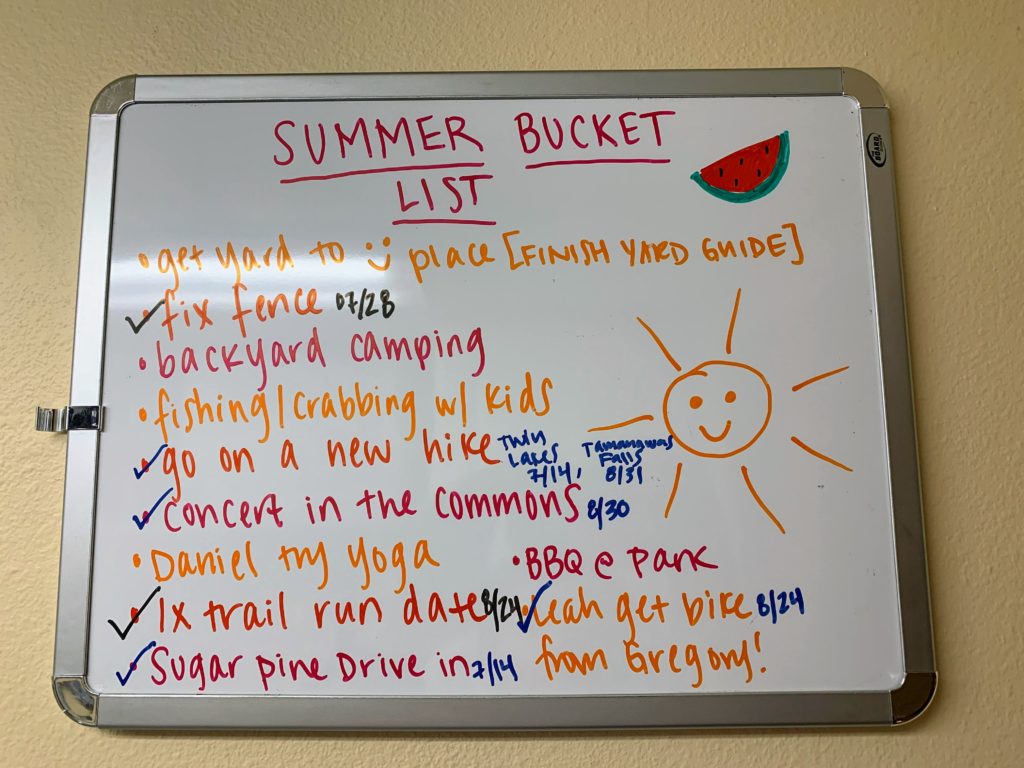 SUMMER BUCKET
LIST
•get yard to :) place [FINISH YARD GUIDE]
✓•fix fence 07/28
•backyard camping
•fishing/crabbing w/ kids
✓•go on a new hike Twin Lakes 7/14, Tamanawas Falls 8/31
✓•concert in the commons 8/30
•Daniel try yoga
•BBQ @ Park
✓•1x trail run date 8/24
✓•Leah get bike 8/24
from Gregory!
✓•Sugar pine Drive in 7/14
BOARD